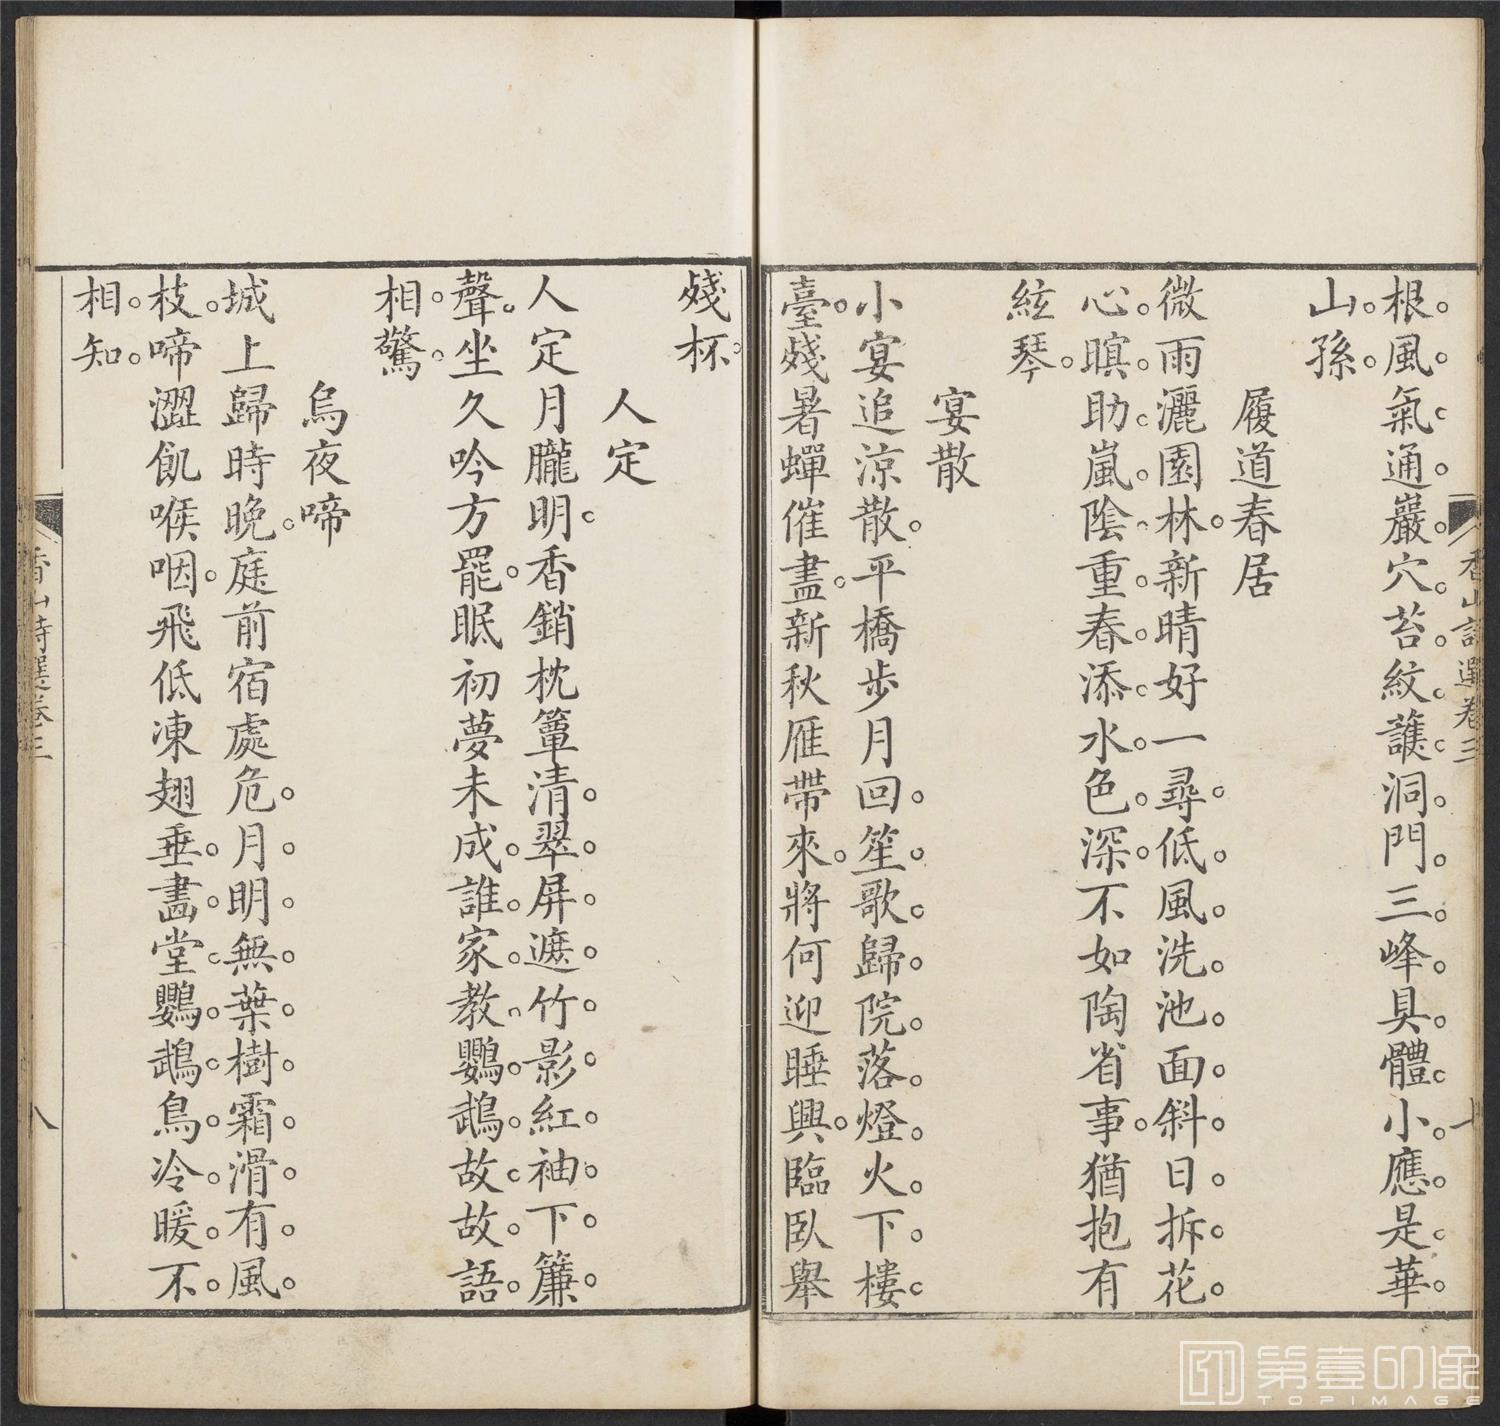 根風氣通巖穴苔紋護洞門三峰具體小應是華
山孫
履道春居
微雨灑園林新晴好一尋低風洗池面斜日拆花
心暝助嵐陰重春添水色深不如陶省事猶抱有
絃琴
宴散
小宴追涼散平橋步月回笙歌歸院落燈火下樓
臺殘暑蟬催盡新秋雁帶來將何迎睡興臨臥舉
殘杯
人定
人定月朧明香銷枕簟清翠屏遮竹影紅袖下簾
聲坐久吟方罷眠初夢未成誰家教鸚鵡故故語
相驚
烏夜啼
城上歸時晚庭前宿處危月明無葉樹霜滑有風
枝啼澀飢喉咽飛低凍翅垂畵堂鸚鵡鳥冷暖不
相知
香山詩選卷三
七
香山詩選卷三
八
第壹印像
TOPIMAGE